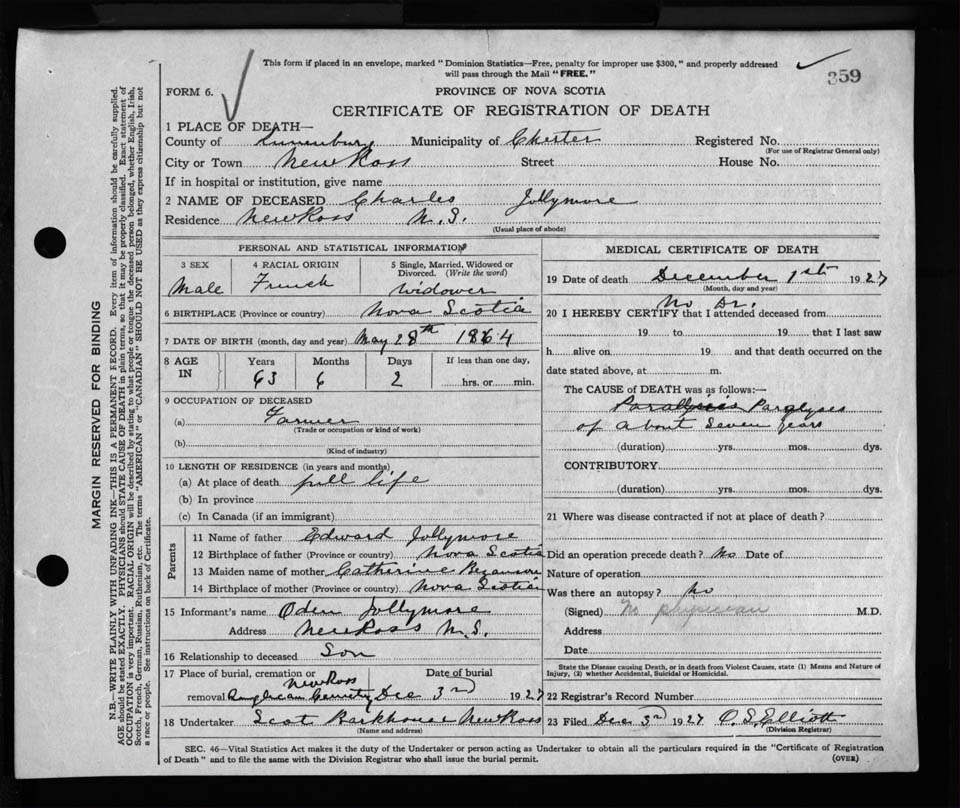 This form if placed in an envelope, marked "Dominion Statistics—Free, penalty for improper use $300," and properly addressed
will pass through the Mail "FREE."
359
FORM 6.
PROVINCE OF NOVA SCOTIA
CERTIFICATE OF REGISTRATION OF DEATH
1 PLACE OF DEATH—
County of Lunenburg Municipality of Chester Registered No.
(For use of Registrar General only)
City or Town New Ross Street House No.
If in hospital or institution, give name
2 NAME OF DECEASED Charles Jollymore
Residence New Ross N.S.
(Usual place of abode)
PERSONAL AND STATISTICAL INFORMATION
3 SEX 4 RACIAL ORIGIN 5 Single, Married, Widowed or
Divorced. (Write the word)
Male French Widower
6 BIRTHPLACE (Province or country) Nova Scotia
7 DATE OF BIRTH (month, day and year) May 28th 1864
8 AGE IN Years Months Days If less than one day,
63 6 2 hrs. or min.
9 OCCUPATION OF DECEASED
(a) Farmer
(Trade or occupation or kind of work)
(b)
(Kind of industry)
10 LENGTH OF RESIDENCE (in years and months)
(a) At place of death full life
(b) In province
(c) In Canada (if an immigrant)
Parents
11 Name of father Edward Jollymore
12 Birthplace of father (Province or country) Nova Scotia
13 Maiden name of mother Catherine Bezanson
14 Birthplace of mother (Province or country) Nova Scotia
15 Informant's name Oden Jollymore
Address New Ross N.S.
16 Relationship to deceased Son
17 Place of burial, cremation or Date of burial
New Ross
removal Anglican Cemetery Dec 3rd 1927
18 Undertaker Scot Barkhouse New Ross
(Name and address)
MEDICAL CERTIFICATE OF DEATH
19 Date of death December 1st 1927
(Month, day and year)
No Dr.
20 I HEREBY CERTIFY that I attended deceased from
19 to 19 that I last saw
h alive on 19 and that death occurred on the
date stated above, at m.
The CAUSE of DEATH was as follows:—
Paralyses
of About Seven years
(duration) yrs. mos. dys.
CONTRIBUTORY
(duration) yrs. mos. dys.
21 Where was disease contracted if not at place of death?
Did an operation precede death? No Date of
Nature of operation
Was there an autopsy? No
(Signed) No physician M.D.
Address
Date
State the Disease causing Death, or in death from Violent Causes, state (1) Means and Nature of
Injury, (2) whether Accidental, Suicidal or Homicidal.
22 Registrar's Record Number
23 Filed Dec 3rd 1927 O. S. Elliott
(Division Registrar)
SEC. 46—Vital Statistics Act makes it the duty of the Undertaker or person acting as Undertaker to obtain all the particulars required in the "Certificate of Registration
of Death" and to file the same with the Division Registrar who shall issue the burial permit.
(OVER)
MARGIN RESERVED FOR BINDING
N.B.—WRITE PLAINLY WITH UNFADING INK—THIS IS A PERMANENT RECORD. Every item of information should be carefully supplied.
AGE should be stated EXACTLY. PHYSICIANS should STATE CAUSE OF DEATH in plain terms, so that it may be properly classified. Exact statement of
OCCUPATION is very important. RACIAL ORIGIN will be described by stating to what people or tongue the deceased person belonged, whether English, Irish,
Scotch, French, German, Russian, Ruthenian, etc. The terms "AMERICAN" or "CANADIAN" SHOULD NOT BE USED as they express citizenship but not
a race or people. See instructions on back of Certificate.